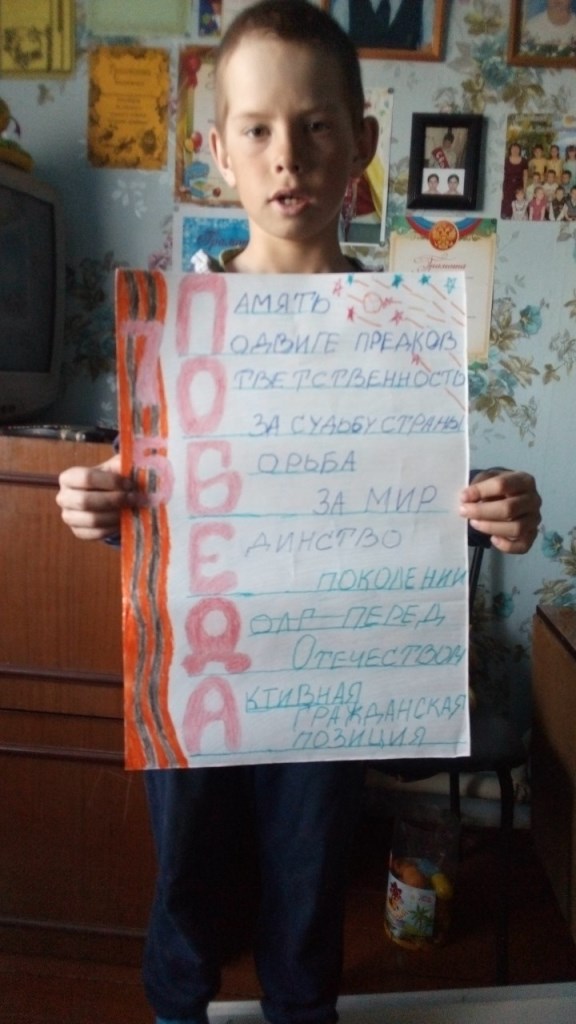 75
ПАМЯТЬ
ПОДВИГЕ ПРЕДКОВ
ОТВЕТСТВЕННОСТЬ
ЗА СУДЬБУ СТРАНЫ
БОРЬБА
ЗА МИР
ЕДИНСТВО
ПОКОЛЕНИЙ
ДОЛГ ПЕРЕД
ОТЕЧЕСТВОМ
АКТИВНАЯ
ГРАЖДАНСКАЯ
ПОЗИЦИЯ